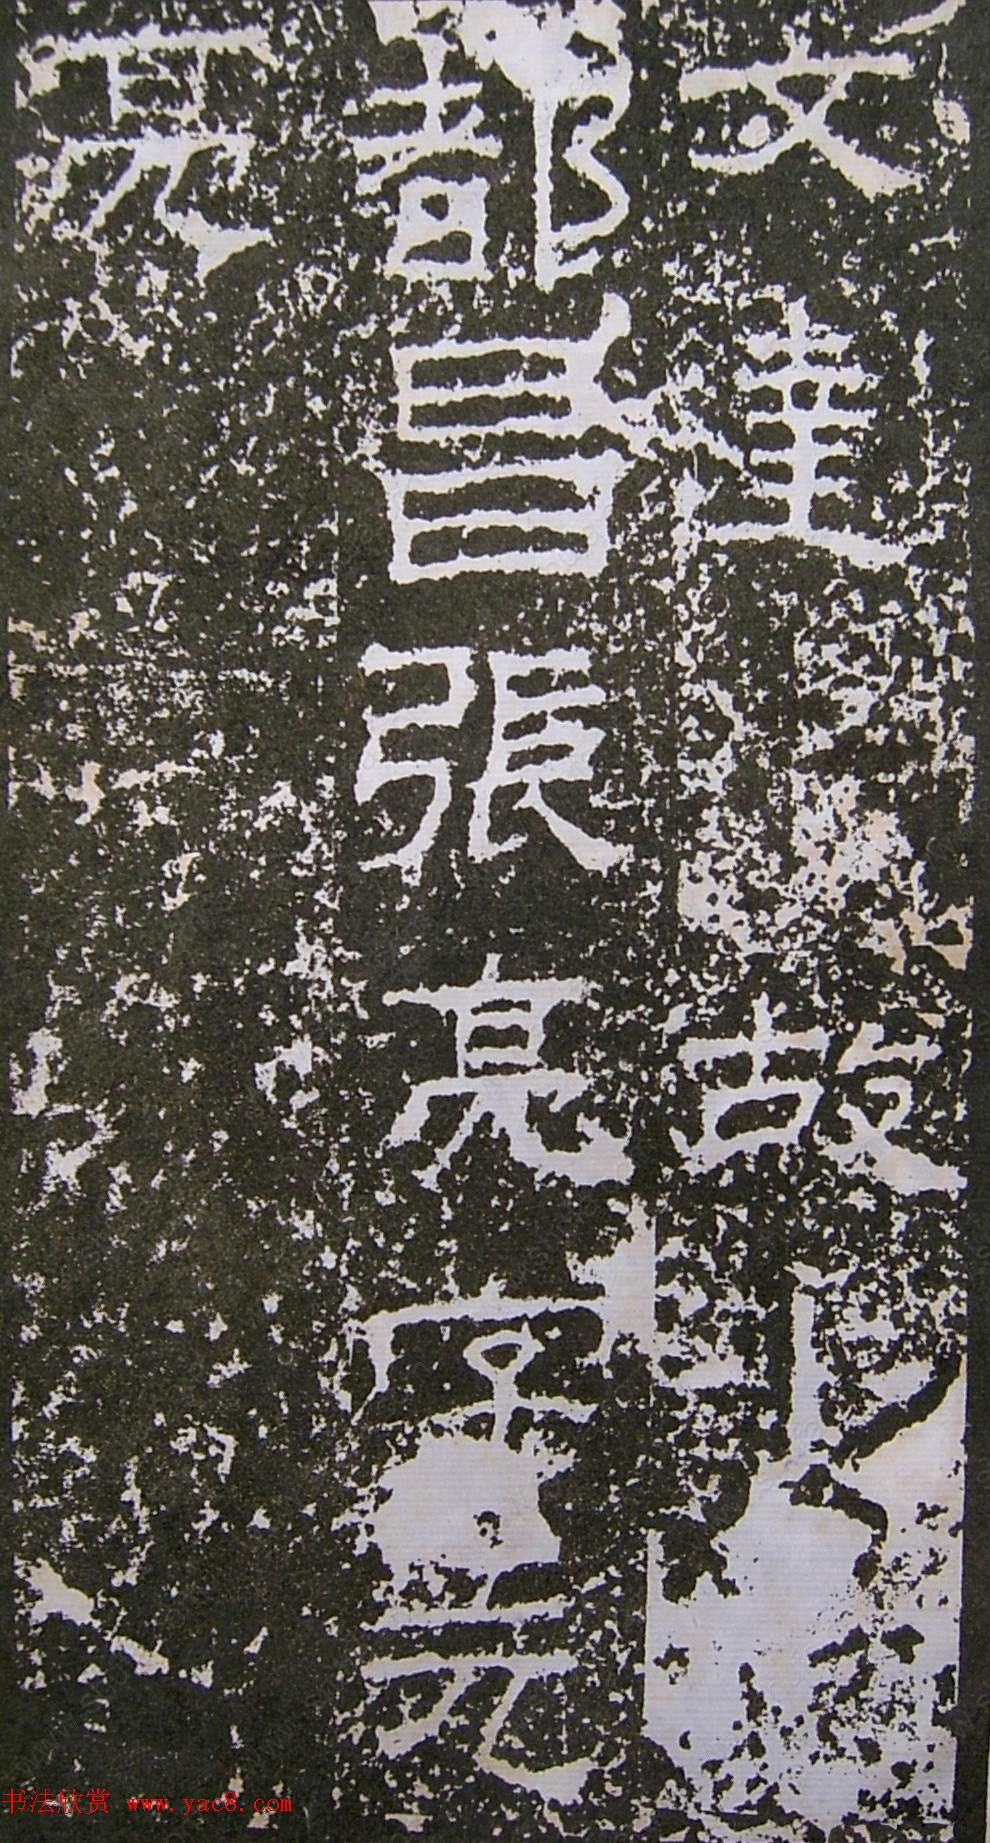 文達故小
都昌張亮字元
亮
书法欣赏 www.yac8.com